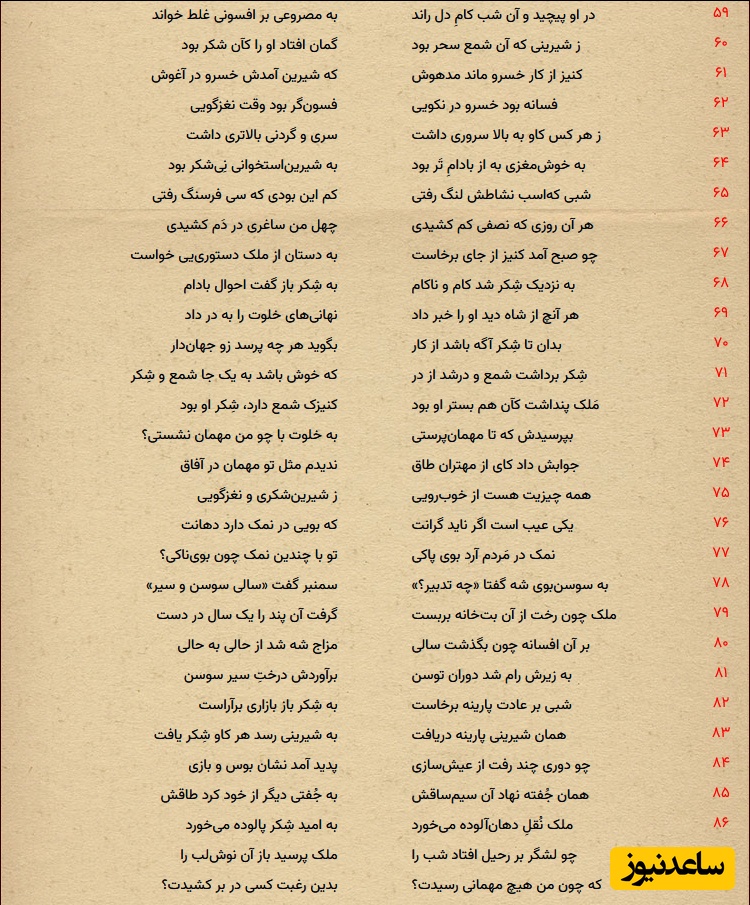 ۵۹ در او پیچید و آن شب کامِ دل راند به مصروعی بر افسونی غلط خواند
۶۰ ز شیرینی که آن شمع سحر بود گمان افتاد او را کآن شکر بود
۶۱ کنیز از کار خسرو ماند مدهوش که شیرین آمدش خسرو در آغوش
۶۲ فسانه بود خسرو در نکویی فسون‌گر بود وقت نغزگویی
۶۳ ز هر کس کاو به بالا سروری داشت سری و گردنی بالاتری داشت
۶۴ به خوش‌مغزی به از بادامِ تَر بود به شیرین‌استخوانی نِی‌شکر بود
۶۵ شبی که‌اسب نشاطش لنگ رفتی کم این بودی که سی فرسنگ رفتی
۶۶ هر آن روزی که نصفی کم کشیدی چهل من ساغری در دَم کشیدی
۶۷ چو صبح آمد کنیز از جای برخاست به دستان از ملک دستوری‌یی خواست
۶۸ به نزدیک شِکر شد کام و ناکام به شِکر باز گفت احوال بادام
۶۹ هر آنچ از شاه دید او را خبر داد نهانی‌های خلوت را به در داد
۷۰ بدان تا شِکر آگه باشد از کار بگوید هر چه پرسد زو جهان‌دار
۷۱ شِکر برداشت شمع و درشد از در که خوش باشد به یک جا شمع و شِکر
۷۲ مَلک پنداشت کآن هم بستر او بود کنیزک شمع دارد، شِکر او بود
۷۳ بپرسیدش که تا مهمان‌پرستی به خلوت با چو من مهمان نشستی؟
۷۴ جوابش داد کای از مهتران طاق ندیدم مثل تو مهمان در آفاق
۷۵ همه چیزیت هست از خوب‌رویی ز شیرین‌شکری و نغزگویی
۷۶ یکی عیب است اگر ناید گرانت که بویی در نمک دارد دهانت
۷۷ نمک در مَردم آرد بوی پاکی تو با چندین نمک چون بوی‌ناکی؟
۷۸ به سوسن‌بوی شه گفتا «چه تدبیر؟» سمنبر گفت «سالی سوسن و سیر»
۷۹ ملک چون رخت از آن بت‌خانه بربست گرفت آن پند را یک سال در دست
۸۰ بر آن افسانه چون بگذشت سالی مزاج شه شد از حالی به حالی
۸۱ به زیرش رام شد دوران توسن برآوردش درختِ سیر سوسن
۸۲ شبی بر عادت پارینه برخاست به شِکر باز بازاری برآراست
۸۳ همان شیرینی پارینه دریافت به شیرینی رسد هر کاو شِکر یافت
۸۴ چو دوری چند رفت از عیش‌سازی پدید آمد نشان بوس و بازی
۸۵ همان جُفته نهاد آن سیم‌ساقش به جُفتی دیگر از خود کرد طاقش
۸۶ ملک نُقلِ دهان‌آلوده می‌خورد به امید شِکر پالوده می‌خورد
چو لشگر بر رحیل افتاد شب را ملک پرسید باز آن نوش‌لب را
که چون من هیچ مهمانی رسیدت؟ بدین رغبت کسی در بر کشیدت؟
ساعدنیوز